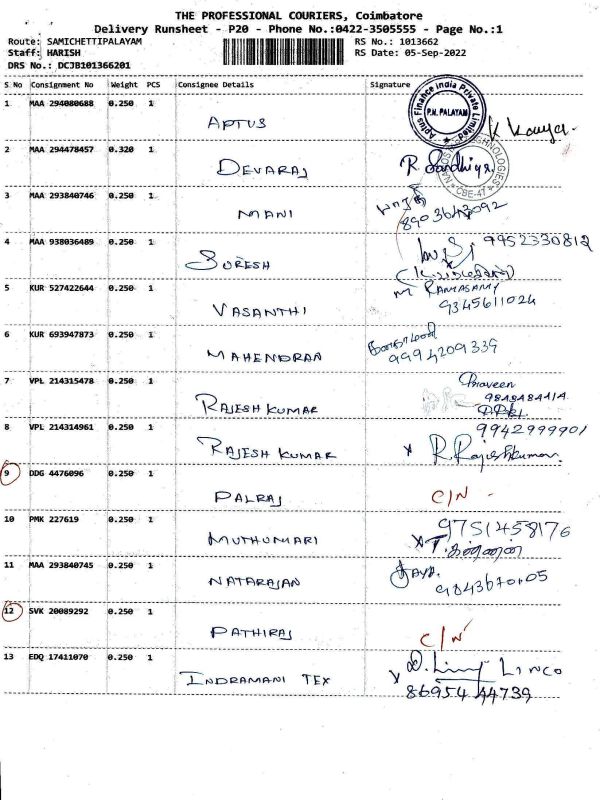 THE PROFESSIONAL COURIERS, Coimbatore
Delivery Runsheet - P20 - Phone No.:0422-3505555 - Page No.:1
Route: SAMICHETTIPALAYAM RS No.: 1013662
Staff: HARISH RS Date: 05-Sep-2022
DRS No.: DCJB101366201
S No Consignment No Weight PCS Consignee Details Signature
1 MAA 294080688 0.250 1 APTUS
Aptus Finance India Private Limited
P.N. PALAYAM
2 MAA 294478457 0.320 1 DEVARAJ
TECHNOLOGIES
CBE-47
3 MAA 293840746 0.250 1 MANI
8903643092
4 MAA 938036489 0.250 1 SURESH 9952330812
5 KUR 527422644 0.250 1 VASANTHI RAMASAMY
9345611024
6 KUR 693947873 0.250 1 MAHENDRAN
9994209339
7 VPL 214315478 0.250 1 RAJESH KUMAR Praveen
9848484414
8 VPL 214314961 0.250 1 RAJESH KUMAR 9942999901
x R. Rajeshkumar
9 DDG 4476096 0.250 1 PALRAJ C/N -
10 PMK 227619 0.250 1 MUTHUMARI 9751458176
11 MAA 293840745 0.250 1 NATARAJAN Jaya.
12 SVK 20089292 0.250 1 PATHIRAJ C/N
13 EDQ 17411070 0.250 1 INDRAMANI TEX LINCO
86954 44739